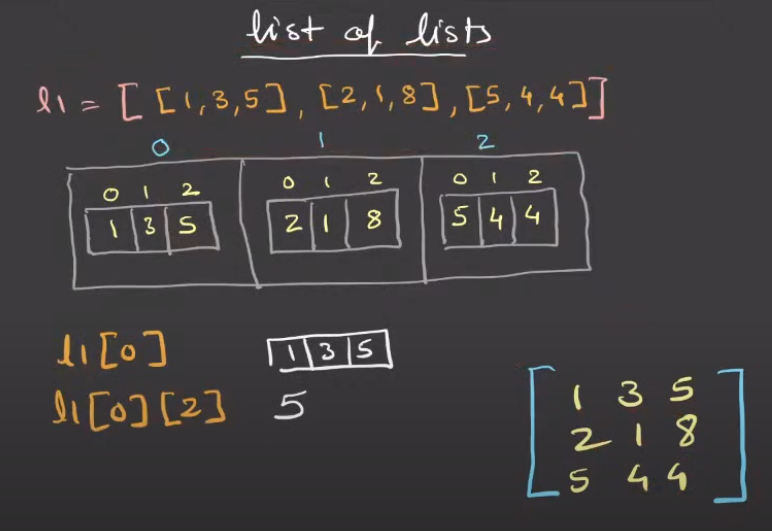 list of lists
l1 = [ [1,3,5], [2,1,8], [5,4,4]]
0 1 2
0 1 2 0 1 2 0 1 2
1 3 5 2 1 8 5 4 4
l1[0] 1 3 5
l1[0][2] 5
1 3 5
2 1 8
5 4 4